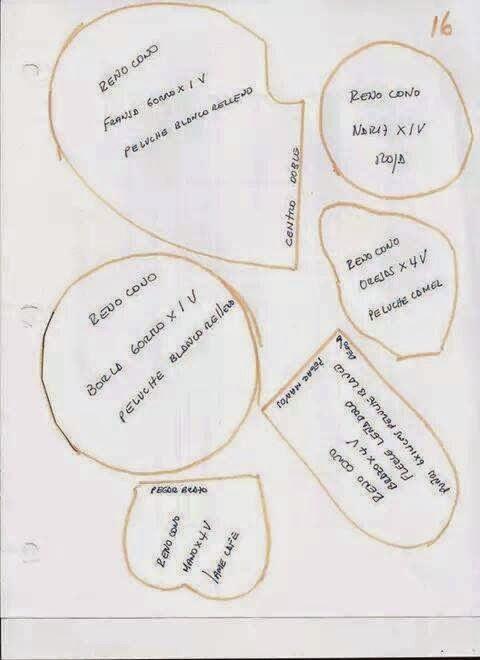 16
RENO CONO
FRANJA GORRO X 1 V
PELUCHE BLANCO RELLENO
CENTRO DOBLE
RENO CONO
NARIZ X 1 V
ROJA
RENO CONO
OREJAS X 4 V
PELUCHE CAMEL
RENO CONO
BORLA GORRO X 1 V
PELUCHE BLANCO RELLENO
PEGAR MANOS
RENO CONO
BRAZO X 4 V
PUÑOS 6X14CMS PELUCHE BLANCO
PEGAR BRAZO
RENO CONO
MANO X 4 V
CAFE